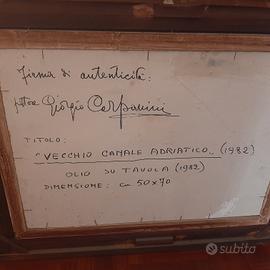 Firma di autenticità:
pittore Giorgio Carpanini
TITOLO:
"VECCHIO CANALE ADRIATICO" (1982)
OLIO SU TAVOLA (1982)
DIMENSIONE: cm 50x70
subito